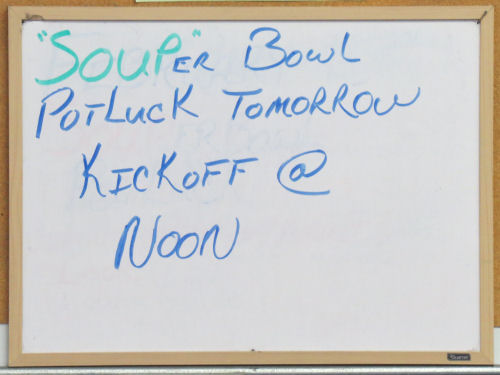 "SOUP"ER BOWL
POTLUCK TOMORROW
KICKOFF @
NOON